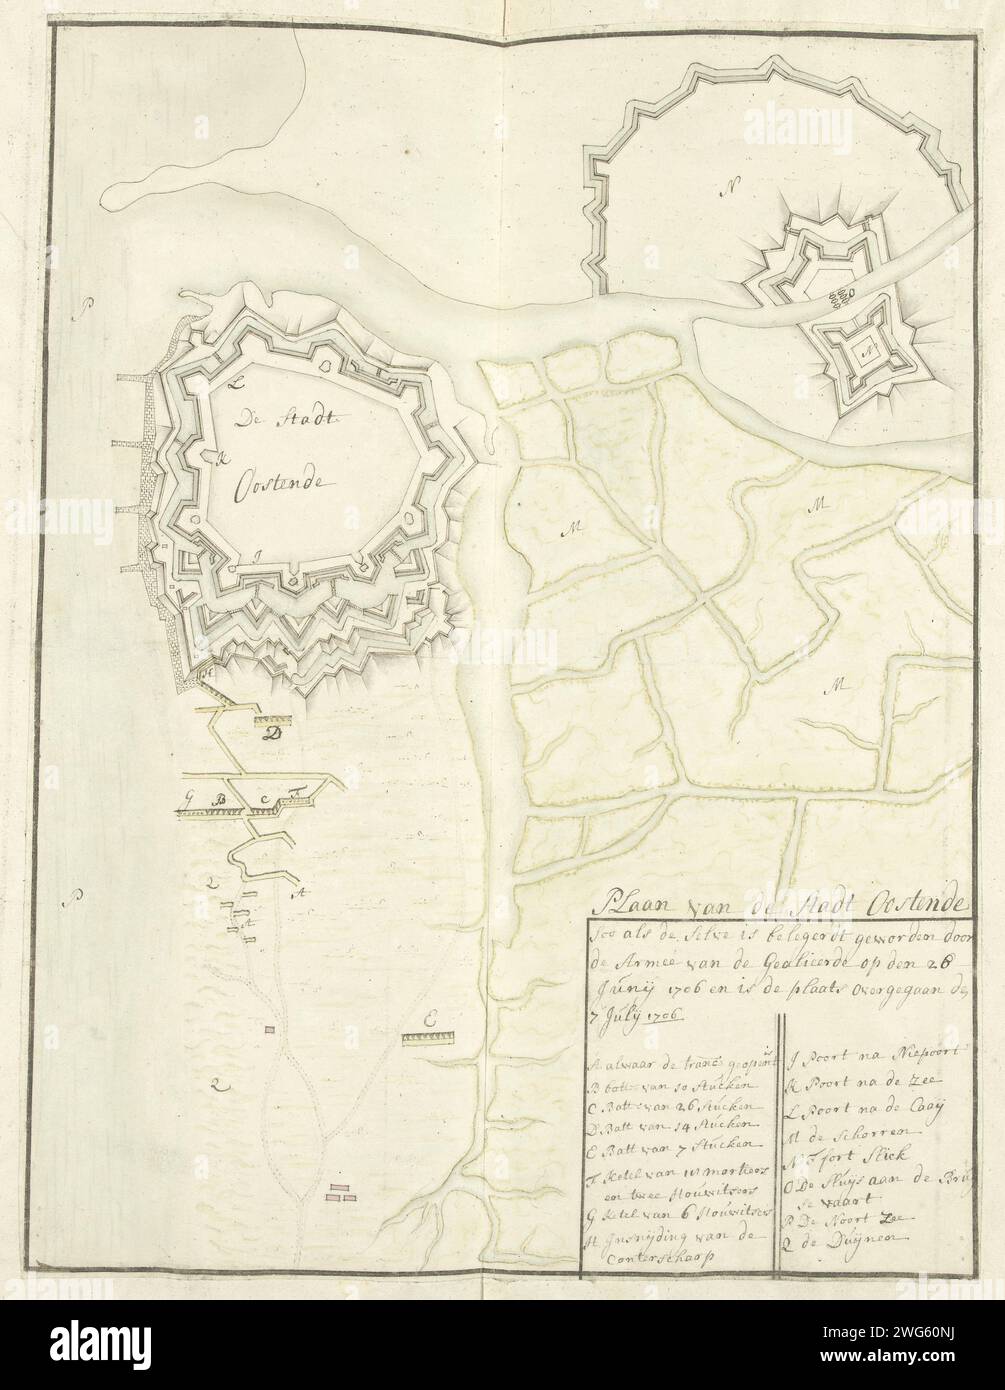 N
P
L
De Stadt
K
Oostende
J
N
O
M
M
M
H
D
G B C F
A
Q
A
P
E
Q
PLaan van de Stadt Oostende
Soo als de Selve is belegerdt geworden door
de Armee van de Gealieerde op den 28
Junij 1706 en is de plaats overgegaan de
7 Julij 1706
A alwaar de tranc geopent is
B batt van 10 Stucken
C Batt van 26 Stucken
D Batt van 14 Stucken
E Batt van 7 Stucken
F Ketel van mortiers
en twee Houwitsers
G Ketel van 6 Houwitsers
H Insnijding van de
Conterscharp
J Poort na Niepoort
K Poort na de Zee
L Poort na de Caaij
M de Schorren
N fort Slick
O De Sluijs aan de Brug
se vaart
P De Noort Zee
Q de Duijnen
alamy
Image ID: 2WG60NJ
www.alamy.com